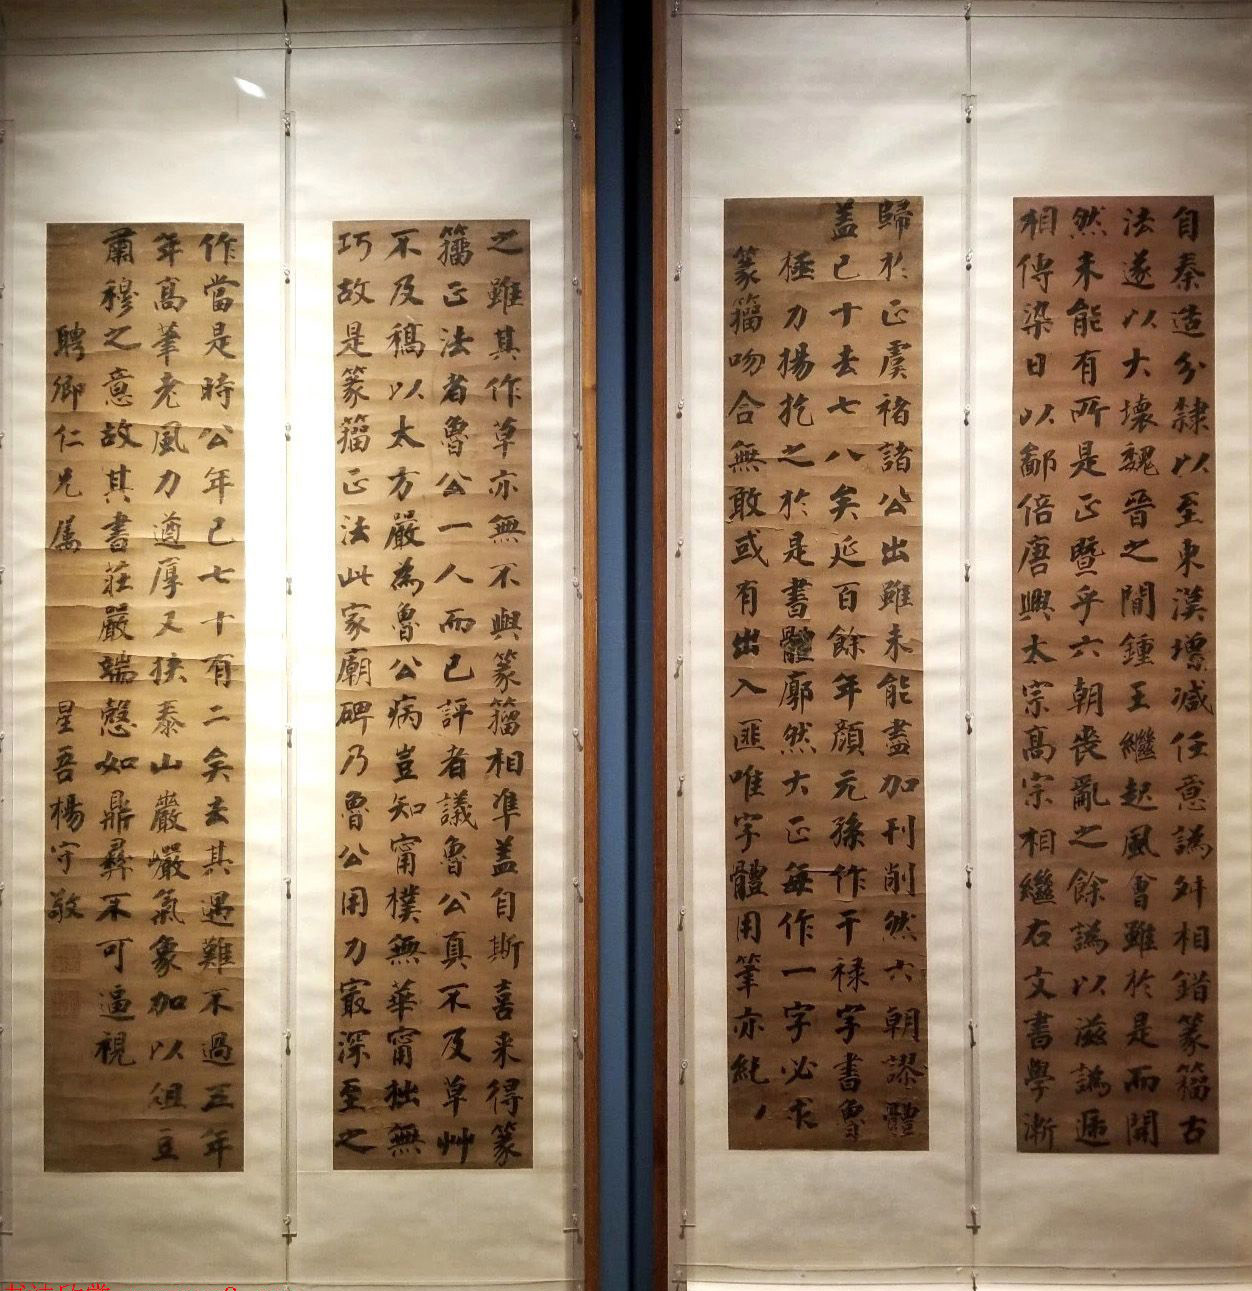 自秦造分隸以至東漢增減任意譌舛相錯篆籀古
法遂以大壞魏晉之間鍾王繼起風會雖於是而開
然未能有所是正暨乎六朝喪亂之餘譌以滋譌遞
相傳染日以鄙倍唐興太宗高宗相繼右文書學漸
歸於正虞褚諸公出雖未能盡加刊削然六朝謬體
蓋已十去七八矣延百餘年顏元孫作干祿字書魯
極力揚扢之於是書體廓然大正每作一字必求
篆籀吻合無敢或有出入匪唯字體用筆亦純
之雖其作草亦無不與篆籀相準蓋自斯喜來得篆
籀正法者魯公一人而已評者議魯公真不及草艸
不及稿以太方嚴為魯公病豈知甯樸無華甯拙無
巧故是篆籀正法此家廟碑乃魯公用力㝡深至之
作當是時公年已七十有二矣去其遇難不過五年
年高筆老風力遒厚又挾泰山巖巖氣象加以俎豆
肅穆之意故其書莊嚴端愨如鼎彝不可逼視
聘卿仁兄属 星吾楊守敬